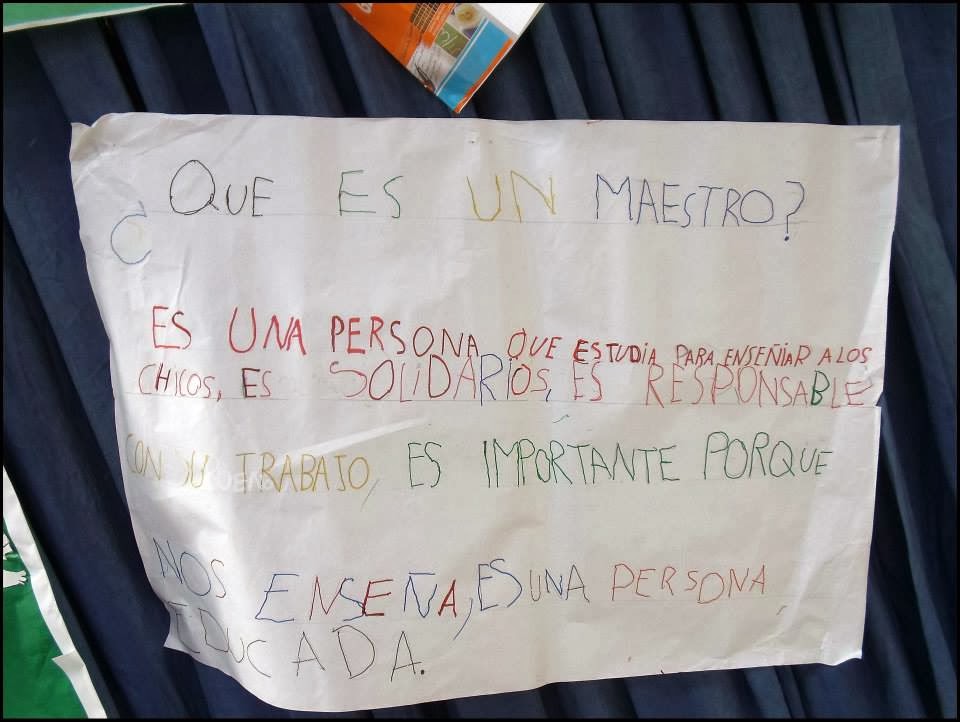 ¿QUE ES UN MAESTRO?
ES UNA PERSONA QUE ESTUDIA PARA ENSEÑIAR A LOS
CHICOS, ES SOLIDARIOS, ES RESPONSABLE
CON SU TRABAJO, ES IMPORTANTE PORQUE
NOS ENSEÑA, ES UNA PERSONA
EDUCADA.